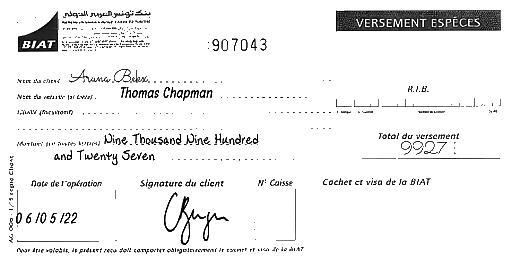 بنك تونس العربي الدولي
BIAT
VERSEMENT ESPÈCES
:907043
Nom du client Aruna Bebx
R.I.B.
Nom du remettant (si tiers) Thomas Chapman
Libellé (facultatif)
Montant (en toutes lettres) Nine Thousand Nine Hundred
and Twenty Seven
Total du versement
9927
Date de l'opération
Signature du client
N° Caisse
Cachet et visa de la BIAT
06/05/22
Pour être valable, le présent reçu doit comporter obligatoirement le cachet et visa de la BIAT